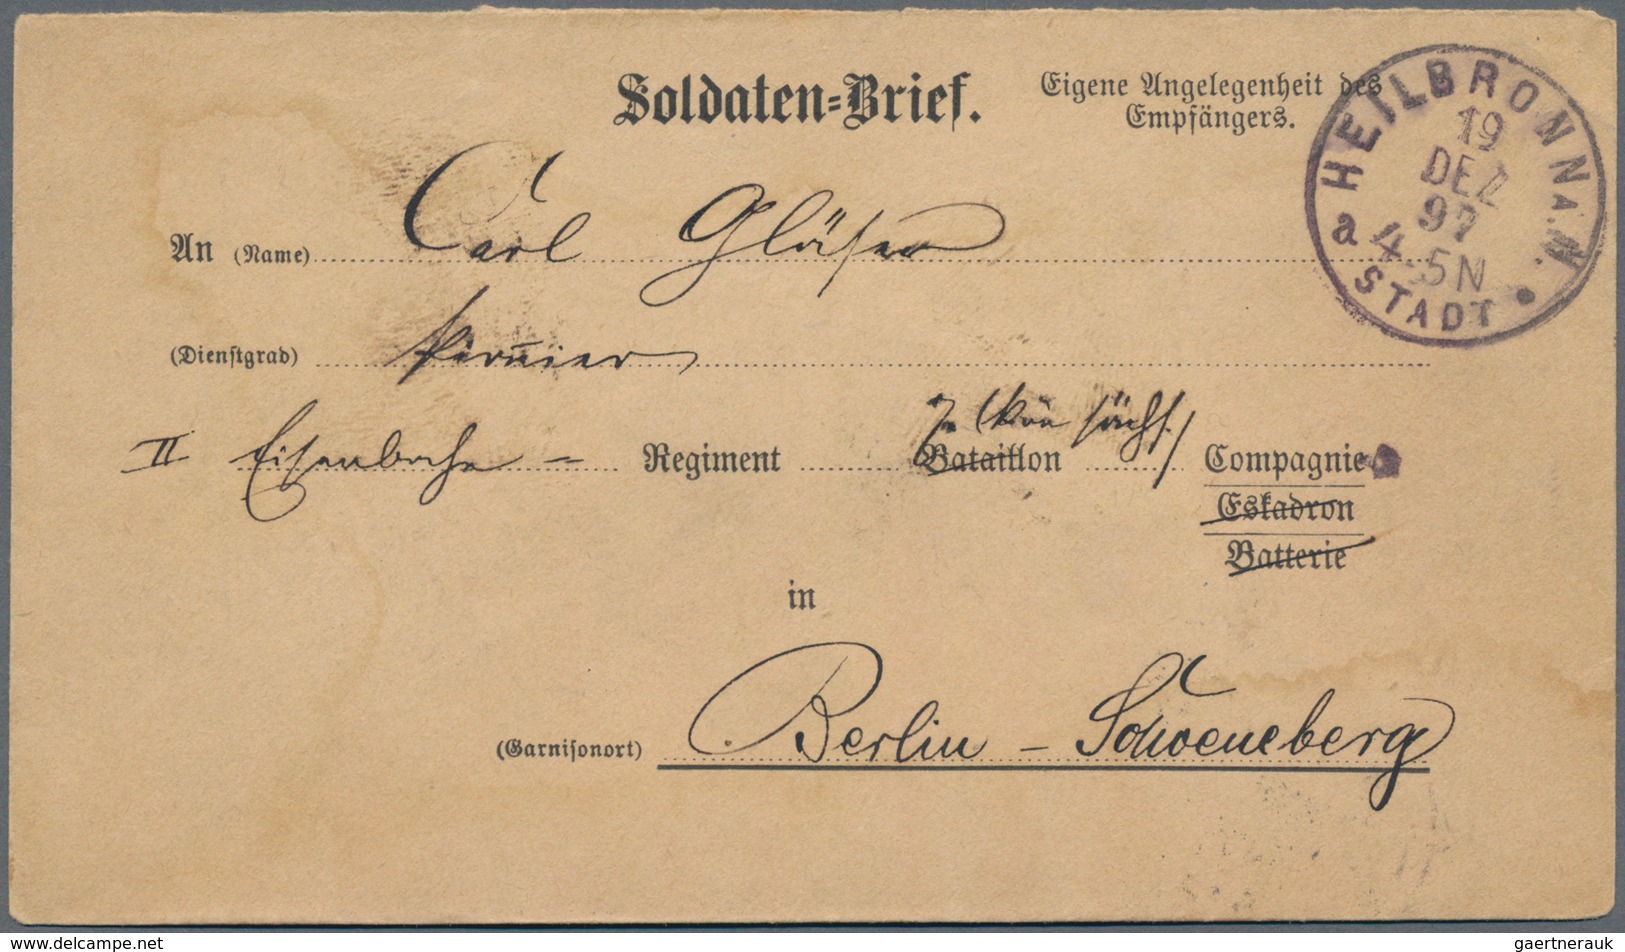 Soldaten=Brief.
Eigene Angelegenheit des
Empfängers.
HEILBRONN A. N.
19
DEZ
97
4-5N
a STADT
An (Name) Carl Gläser
(Dienstgrad) Pionier
II Eisenbahn - Regiment Bataillon 7. (Kön sächs.) Compagnie
Eskadron
Batterie
in
(Garnisonort) Berlin - Schoeneberg
www.delcampe.net
gaertnerauk